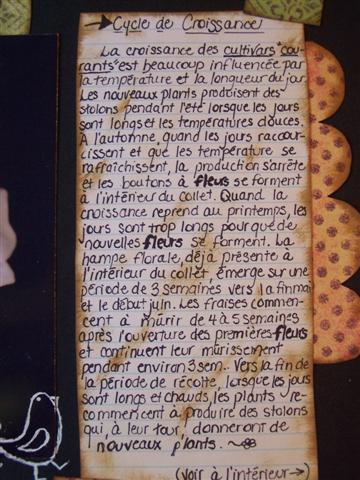 → Cycle de Croissance
La croissance des cultivars "cou-
rants" est beaucoup influencée par
la température et la longueur du jour.
Les nouveaux plants produisent des
stolons pendant l'été lorsque les jours
sont longs et les températures douces.
À l'automne, quand les jours raccour-
cissent et que les température se
raffraîchissent, la production s'arrête
et les boutons à fleurs se forment
à l'intérieur du collet. Quand la
croissance reprend au printemps, les
jours sont trop longs pour que de
nouvelles fleurs se forment. La
hampe florale, déjà présente à
l'intérieur du collet, émerge sur une
période de 3 semaines vers la fin mai
et le début juin. Les fraises commen-
cent à mûrir de 4 à 5 semaines
après l'ouverture des premières fleurs
et continuent leur mûrissement
pendant environ 3 sem.. Vers la fin de
la période de récolte, lorsque les jours
sont longs et chauds, les plants re-
commencent à produire des stolons
qui, à leur tour, donneront de
nouveaux plants.
(voir à l'intérieur →)